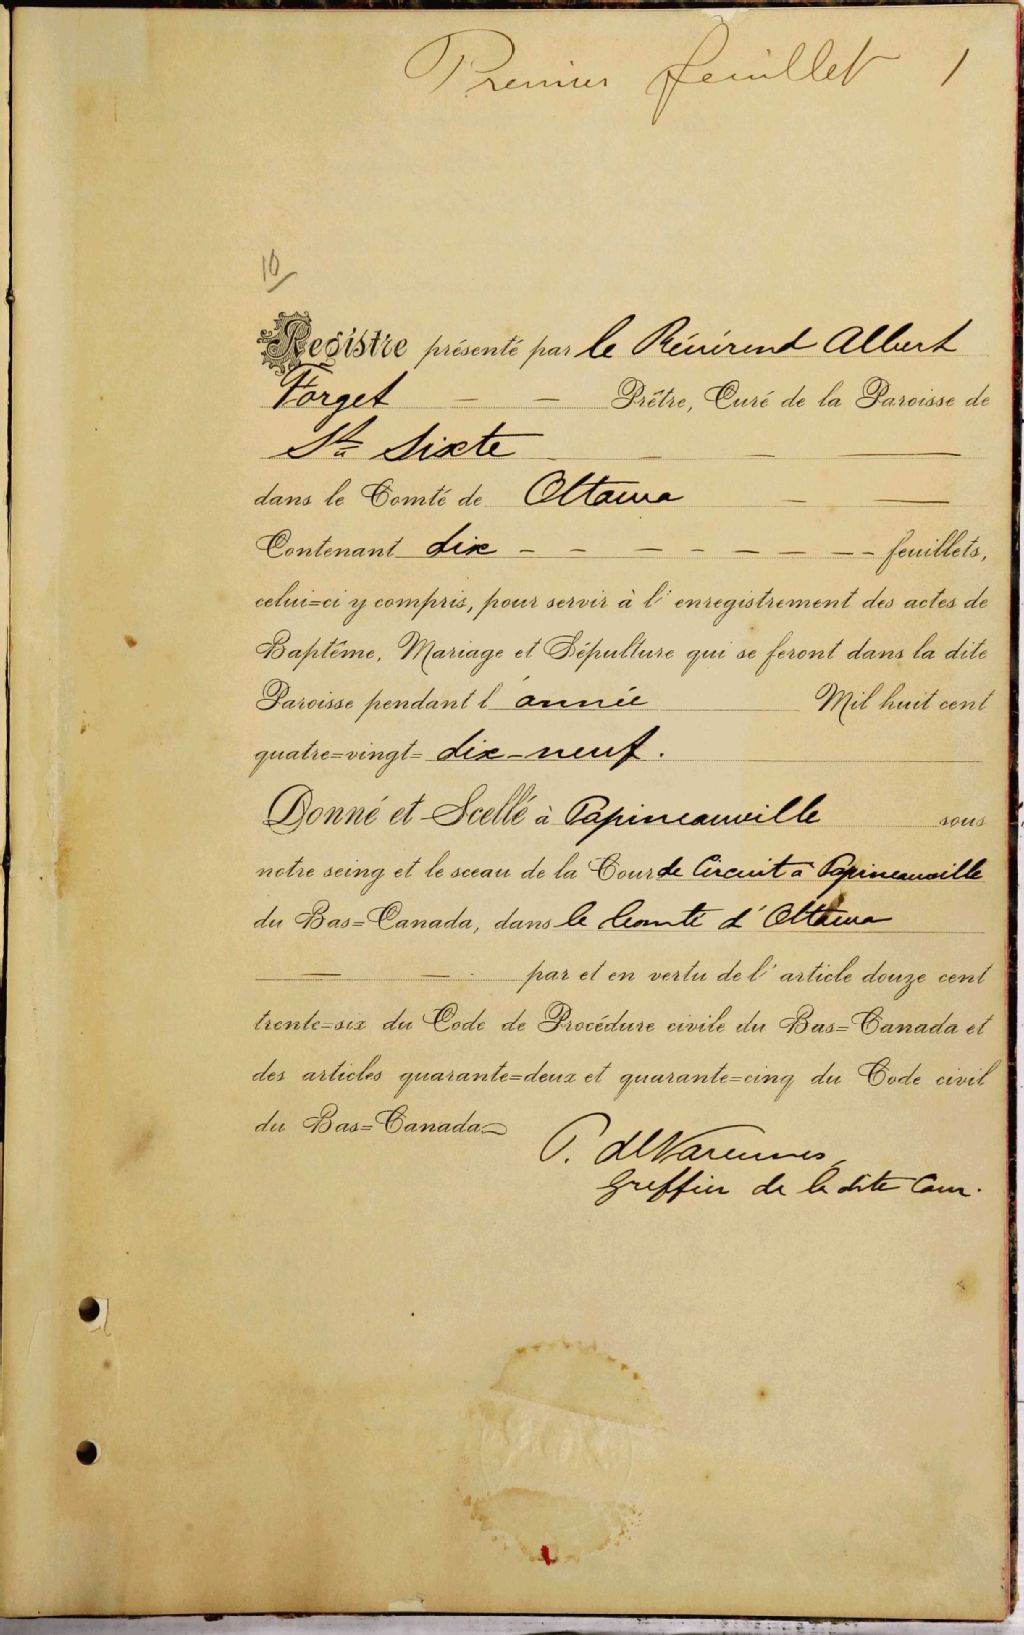 Premier feuillet 1
10
Registre présenté par le Révérend Albert
Forget — — Prêtre, Curé de la Paroisse de
St Sixte — — —
dans le Comté de Ottawa — —
Contenant dix - - - - - - - - feuillets,
celui=ci y compris, pour servir à l'enregistrement des actes de
Baptême, Mariage et Sépulture qui se feront dans la dite
Paroisse pendant l'année Mil huit cent
quatre=vingt= dix-neuf.
Donné et Scellé à Papineauville sous
notre seing et le sceau de la Cour de Circuit à Papineauville
du Bas=Canada, dans le Comté d'Ottawa
— — par et en vertu de l'article douze cent
trente=six du Code de Procédure civile du Bas=Canada et
des articles quarante=deux et quarante=cinq du Code civil
du Bas=Canada
P. deVarennes,
Greffier de la dite Cour.